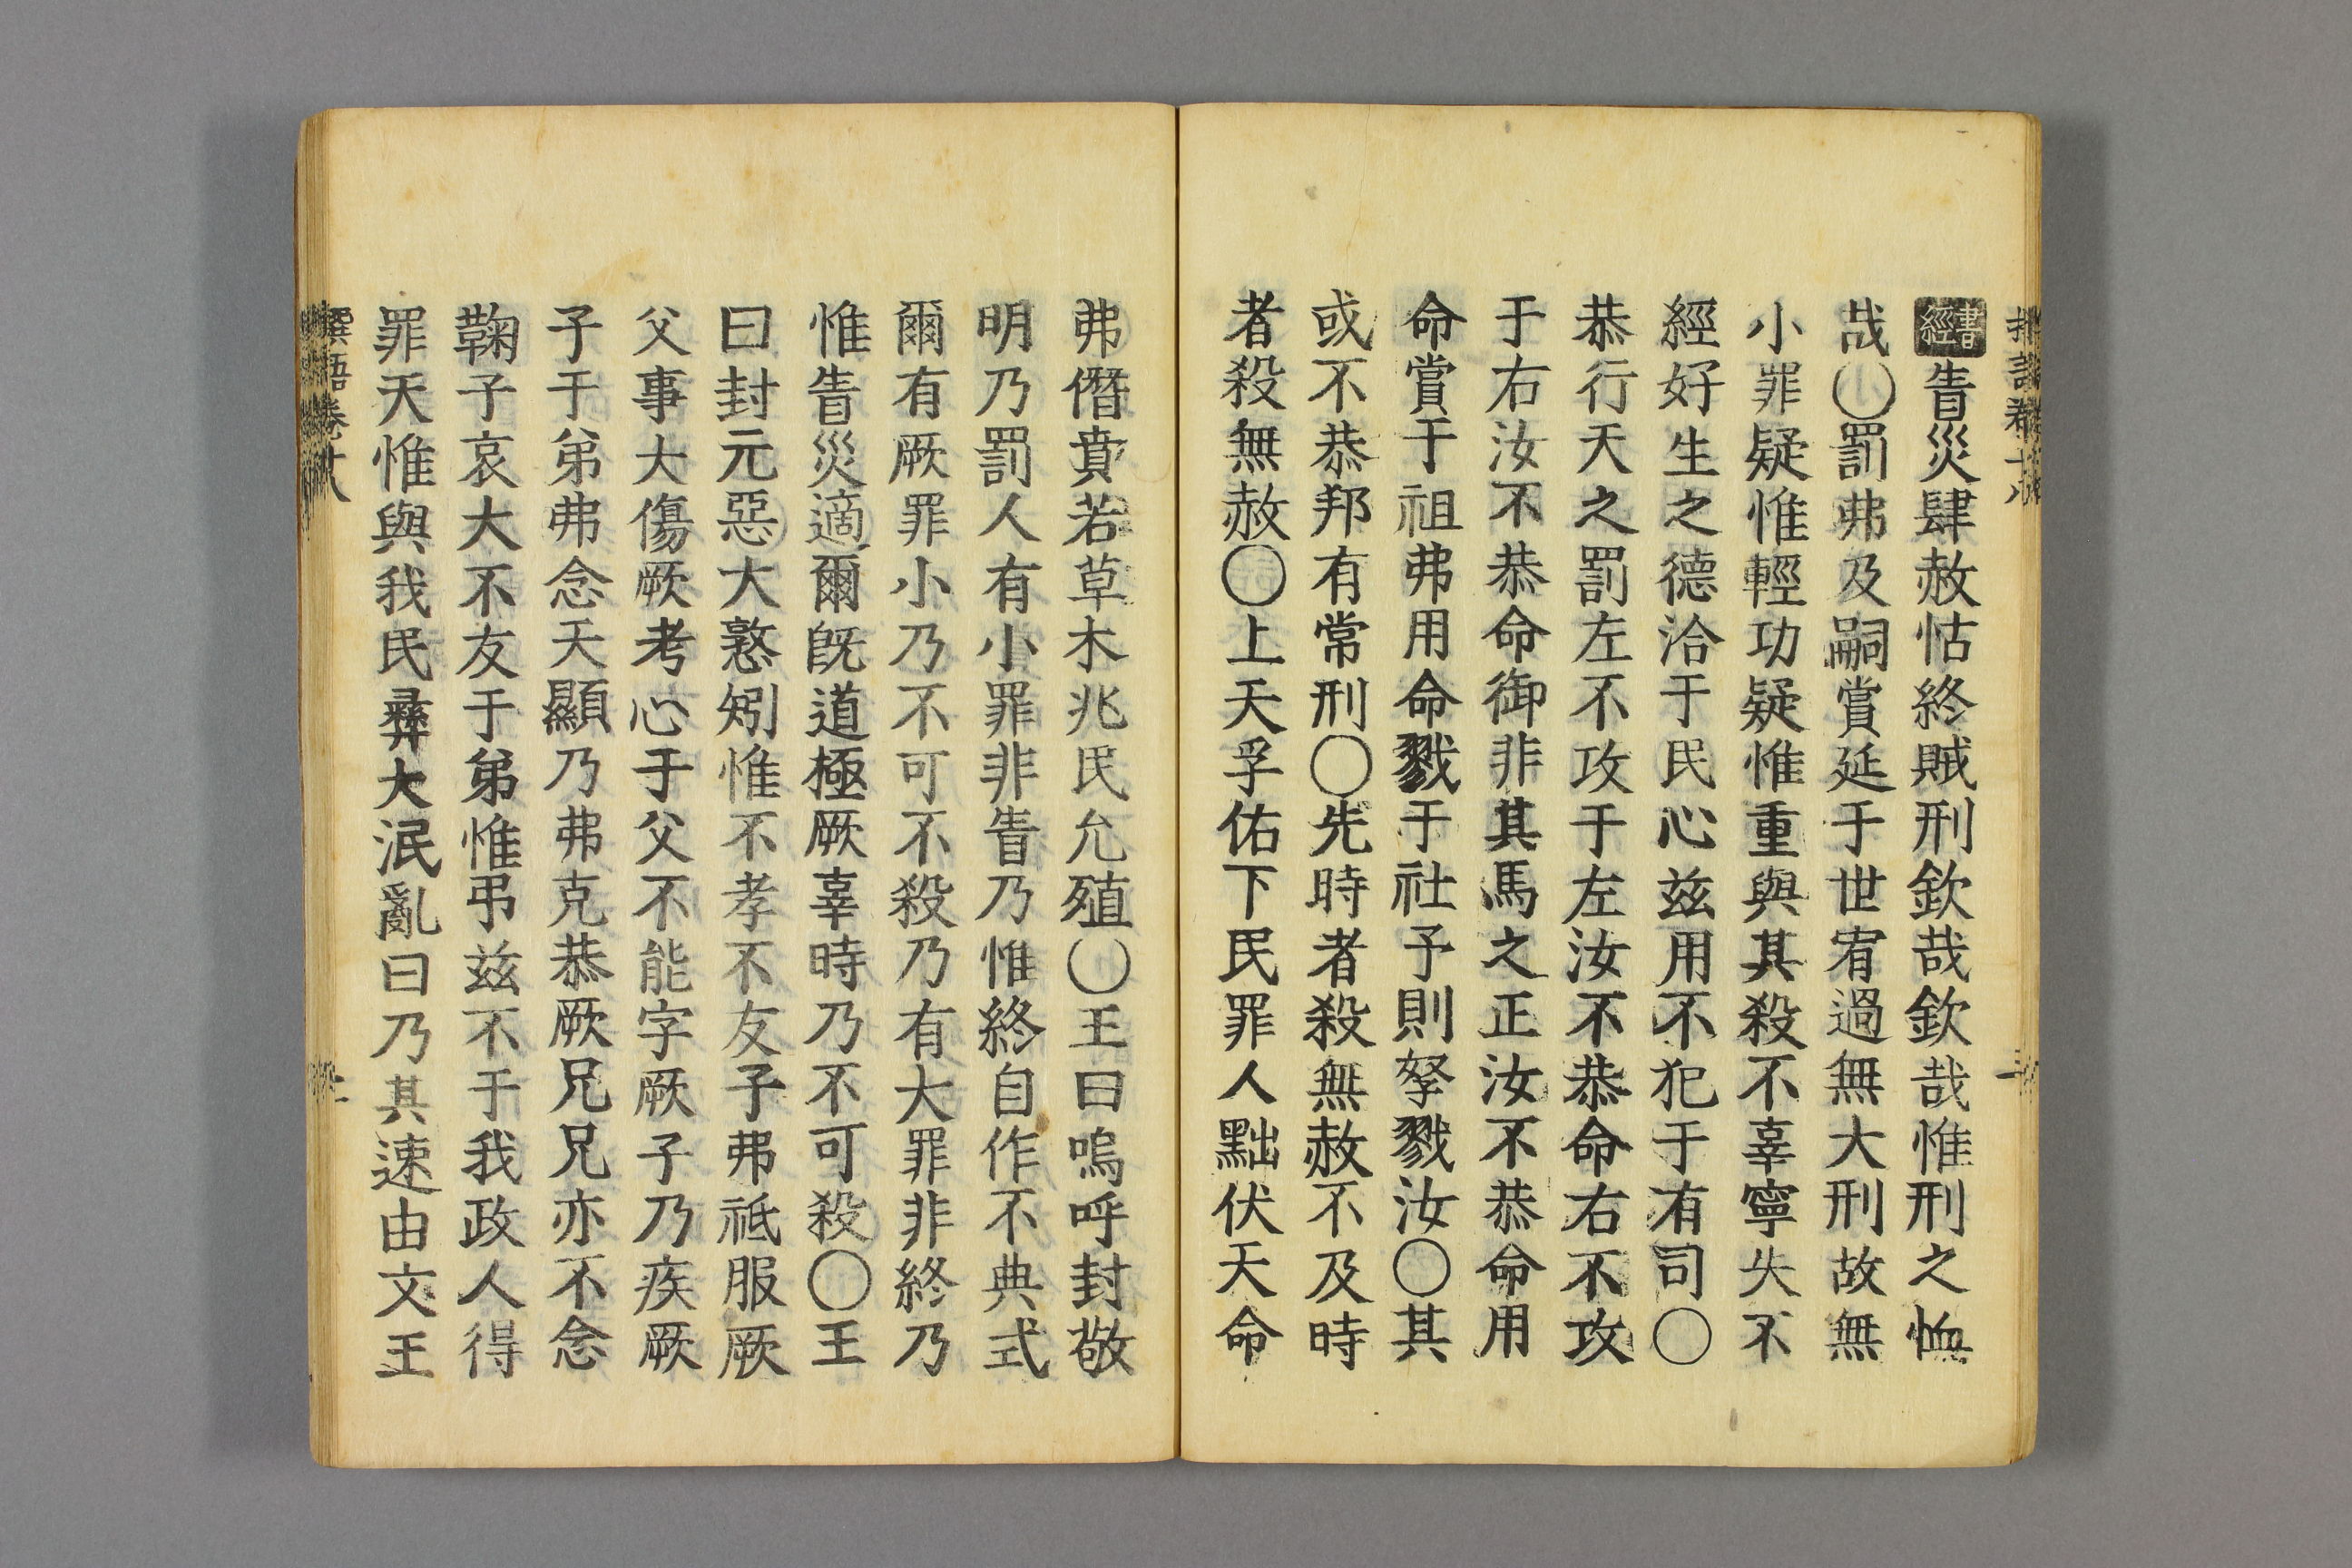 書經眚災肆赦怙終賊刑欽哉欽哉惟刑之恤
哉〇罰弗及嗣賞延于世宥過無大刑故無
小罪疑惟輕功疑惟重與其殺不辜寧失不
經好生之德洽于民心兹用不犯于有司〇
恭行天之罰左不攻于左汝不恭命右不攻
于右汝不恭命御非其馬之正汝不恭命用
命賞于祖弗用命戮于社予則孥戮汝〇其
或不恭邦有常刑〇先時者殺無赦不及時
者殺無赦〇上天孚佑下民罪人黜伏天命
弗僭賁若草木兆民允殖〇王曰嗚呼封敬
明乃罰人有小罪非眚乃惟終自作不典式
爾有厥罪小乃不可不殺乃有大罪非終乃
惟眚災適爾旣道極厥辜時乃不可殺〇王
曰封元惡大憝矧惟不孝不友子弗祗服厥
父事大傷厥考心于父不能字厥子乃疾厥
子于弟弗念天顯乃弗克恭厥兄兄亦不念
鞠子哀大不友于弟惟弔兹不于我政人得
罪天惟與我民彝大泯亂曰乃其速由文王